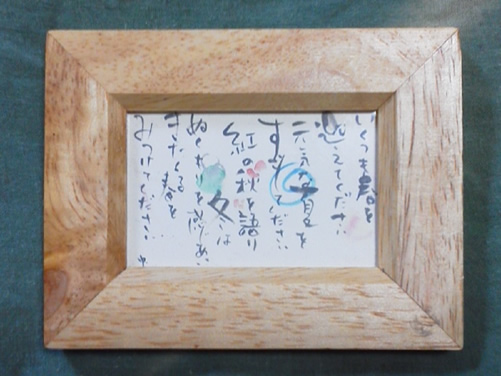 いくつも春を
迎えてください
元気な夏を
すごしてください
紅の秋を語り
冬は
ぬくもりを感じあい
またくる春を
みつけてください